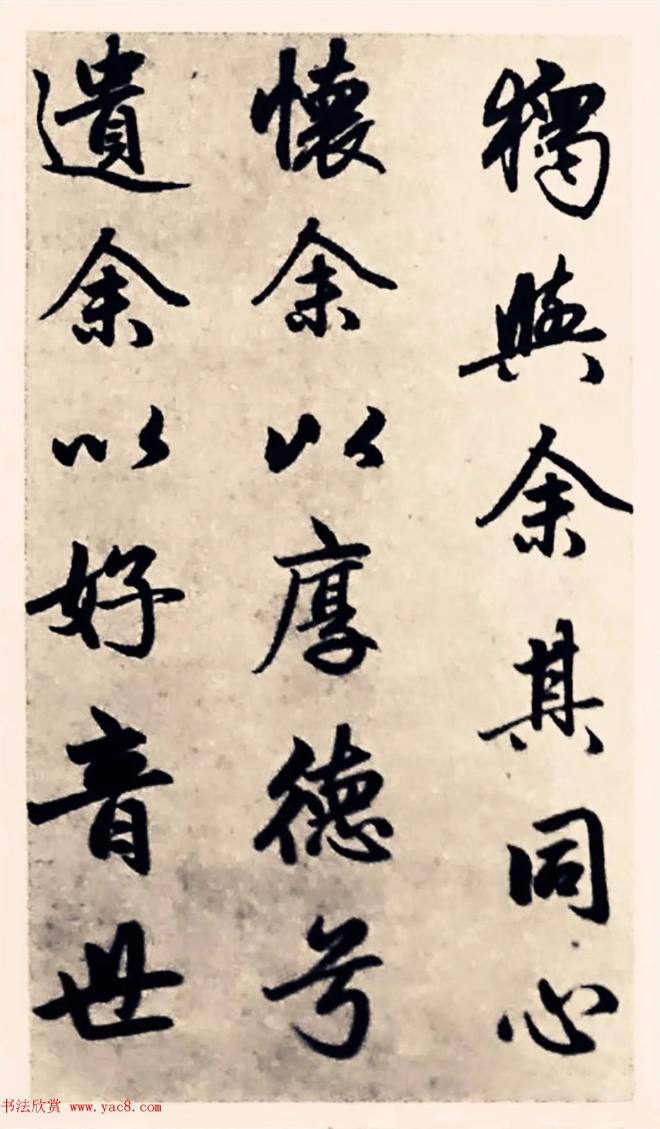 獨與余其同心
懷余以厚德号
遺余以好音世
书法欣赏 www.yac8.com